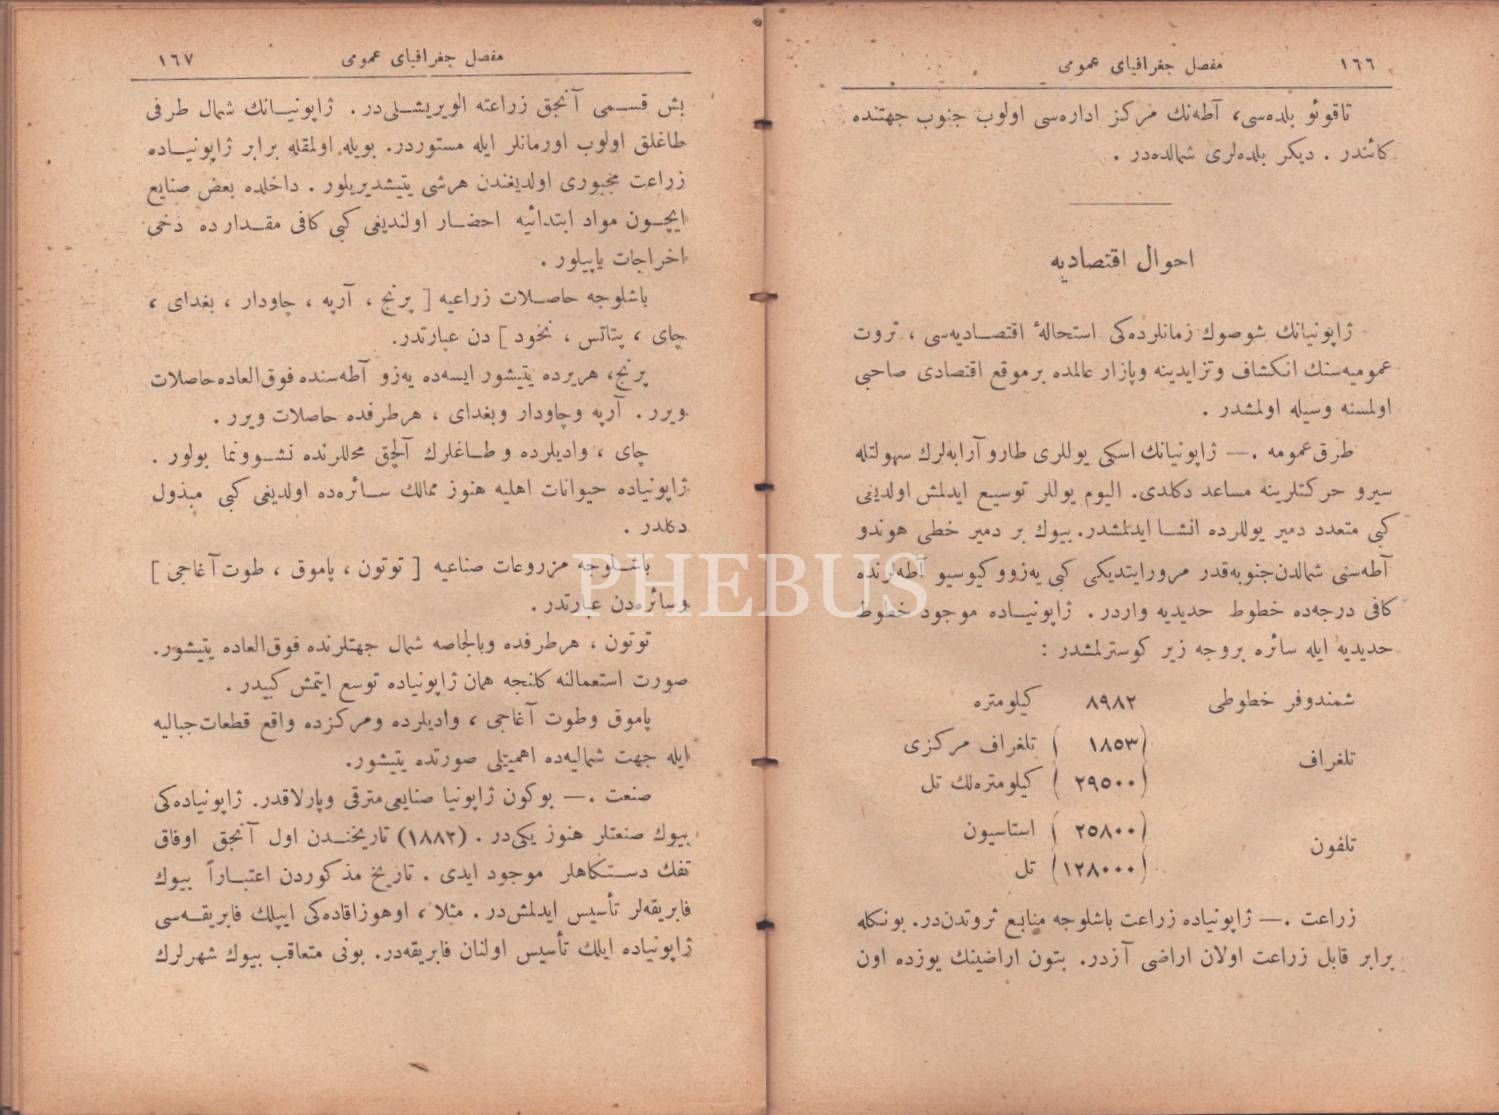 ١٦٦ مفصل جغرافیای عمومی
تاقوئو بلده‌سی، آطه‌نك مركز اداره‌سی اولوب جنوب جهتنده
كائندر . دیكر بلده‌لری شمالده‌در .
احوال اقتصادیه
ژاپونیانك شوصوك زمانلرده‌كی استحالهٔ اقتصـادیه‌سی ، ثروت
عمومیه‌سنك انكشاف وتزایدینه وپازار عالمده برموقع اقتصادی صاحبی
اولمسنه وسیله اولمشدر .
طرق‌عمومه .— ژاپونیانك اسكی یوللری طارو آرابه‌لرك سهولتله
سیرو حركتلرینه مساعد دكلدی. الیوم یوللر توسیع ایدلمش اولدیغی
كبی متعدد دمیر یوللرده انشـا ایدلمشدر. بیوك بر دمیر خطی هوندو
آطه‌سنی شمالدن‌جنوبه‌قدر مرورایتدیكی كبی یه‌زووكیوسیو آطه‌لرنده
كافی درجه‌ده خطوط حدیدیه واردر . ژاپونیـاده موجود خطوط
حدیدیه ایله سائره بروجه زیر كوسترلمشدر :
شمندوفر خطوطی ٨٩٨٢ كیلومتره
تلغراف (١٨٥٣) تلغراف مركزی
(٢٩٥٠٠) كیلومتره‌لك تل
تلفون (٢٥٨٠٠) استاسیون
(١٢٨٠٠٠) تل
زراعت .— ژاپونیاده زراعت باشلوجه منابع ثروتدن‌در. بونكله
برابر قابل زراعت اولان اراضی آزدر. بتون اراضینك یوزده اون
مفصل جغرافیای عمومی ١٦٧
بش قسـمی آنجق زراعته الویریشـلی‌در . ژاپونیـانك شمال طرفی
طاغلق اولوب اورمانلر ایله مستوردر. بویله اولمقله برابر ژاپونیـاده
زراعت مجبوری اولدیغندن هرشی یتیشدیریلور . داخلده بعض صنایع
ایچـون مواد ابتدائیه احضـار اولندیغی كبی كافی مقـدار ده دخی
اخراجات یاپیلور .
باشلوجه حاصـلات زراعیه [ پرنج ، آرپه ، چاودار ، بغدای ،
چای ، پتاتس ، نخود ] دن عبارتدر.
پرنج، هریرده یتیشور ایسه‌ده یه‌زو آطه‌سنده فوق‌العاده‌حاصلات
ویرر . آرپه وچاودار وبغدای ، هرطرفده حاصلات ویرر .
چای ، وادیلرده و طـاغلرك آلچق محللرنده نشـوونما بولور .
ژاپونیاده حیوانات اهلیه هنوز ممالك سـائره‌ده اولدیغی كبی مبذول
دكلدر .
باشـلوجه مزروعات صناعیه [ توتون ، پاموق ، طوت آغاجی ]
وسائره‌دن عبارتدر .
توتون ، هرطرفده وبالخاصه شمال جهتلرنده فوق‌العاده یتیشور.
صورت استعمالنه كلنجه همان ژاپونیاده توسع ایتمش كبیدر .
پاموق وطوت آغاجی ، وادیلرده ومركزده واقع قطعات‌جبالیه
ایله جهت شمالیه‌ده اهمیتلی صورتده یتیشور.
صنعت .— بوكون ژاپونیا صنایعی‌مترقی وپارلاقدر. ژاپونیاده‌كی
بیوك صنعتلر هنوز یكی‌در . (١٨٨٢) تاریخنـدن اول آنجق اوفاق
تفك دسـتكاهلر موجود ایدی . تاریخ مذكوردن اعتبـاراً بیوك
فابریقه‌لر تأسیس ایدلمش‌در . مثلا ، اوهوزاقاده‌كی ایپلك فابریقـه‌سی
ژاپونیاده ایلك تأسیس اولنان فابریقه‌در. بونی متعاقب بیوك شهرلرك
PHEBUS